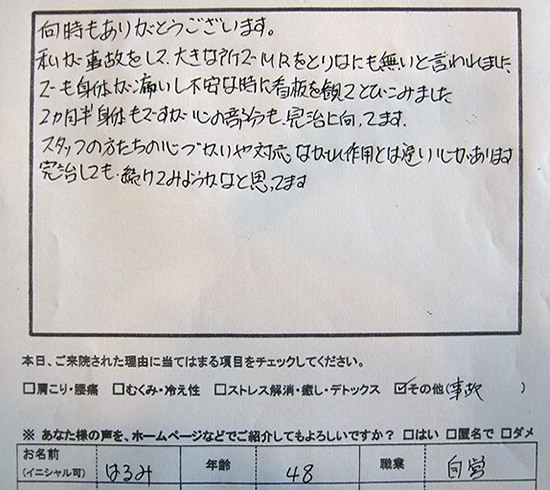 何時もありがとうございます。
私が事故をして、大きな所でMRをとりなにも無いと言われました
でも身体が痛いし不安な時に看板を観てとびこみました
2カ月半身体もですが心の部分も、完治に向ってます。
スタッフの方たちの心づかいや対応、流れ作用とは違い心があります
完治しても、続けてみようかなと思ってます
本日、ご来院された理由に当てはまる項目をチェックしてください。
□肩こり・腰痛 □むくみ・冷え性 □ストレス解消・癒し・デトックス ☑その他(事故 )
※ あなた様の声を、ホームページなどでご紹介してもよろしいですか? □はい □匿名で □ダメ
お名前 (イニシャル可) はるみ 年齢 48 職業 自営